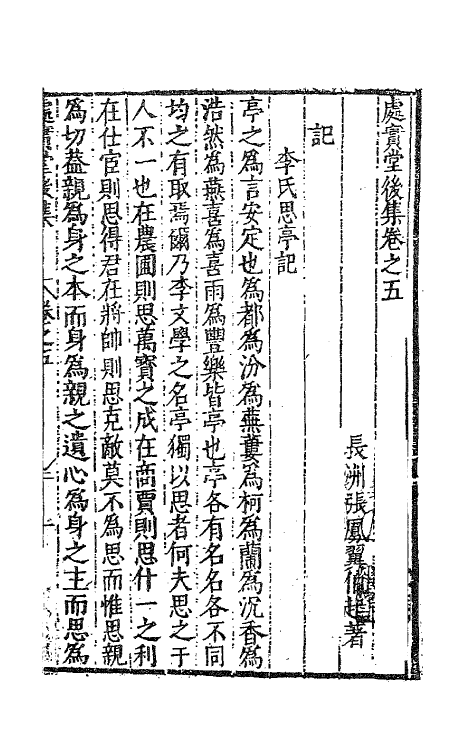 處實堂後集卷之五
長洲張鳳翼伯起著
記
李氏思亭記
亭之為言安定也為都為汾為蕪蔞為柯為蘭為沉香為
浩然為燕喜為喜雨為豐樂皆亭也亭各有名名各不同
均之有取焉爾乃李文學之名亭獨以思者何夫思之于
人不一也在農圃則思萬寶之成在商賈則思什一之利
在仕宦則思得君在將帥則思克敵莫不為思而惟思親
為切葢親為身之本而身為親之遺心為身之主而思為
處實堂後集 卷之五 一